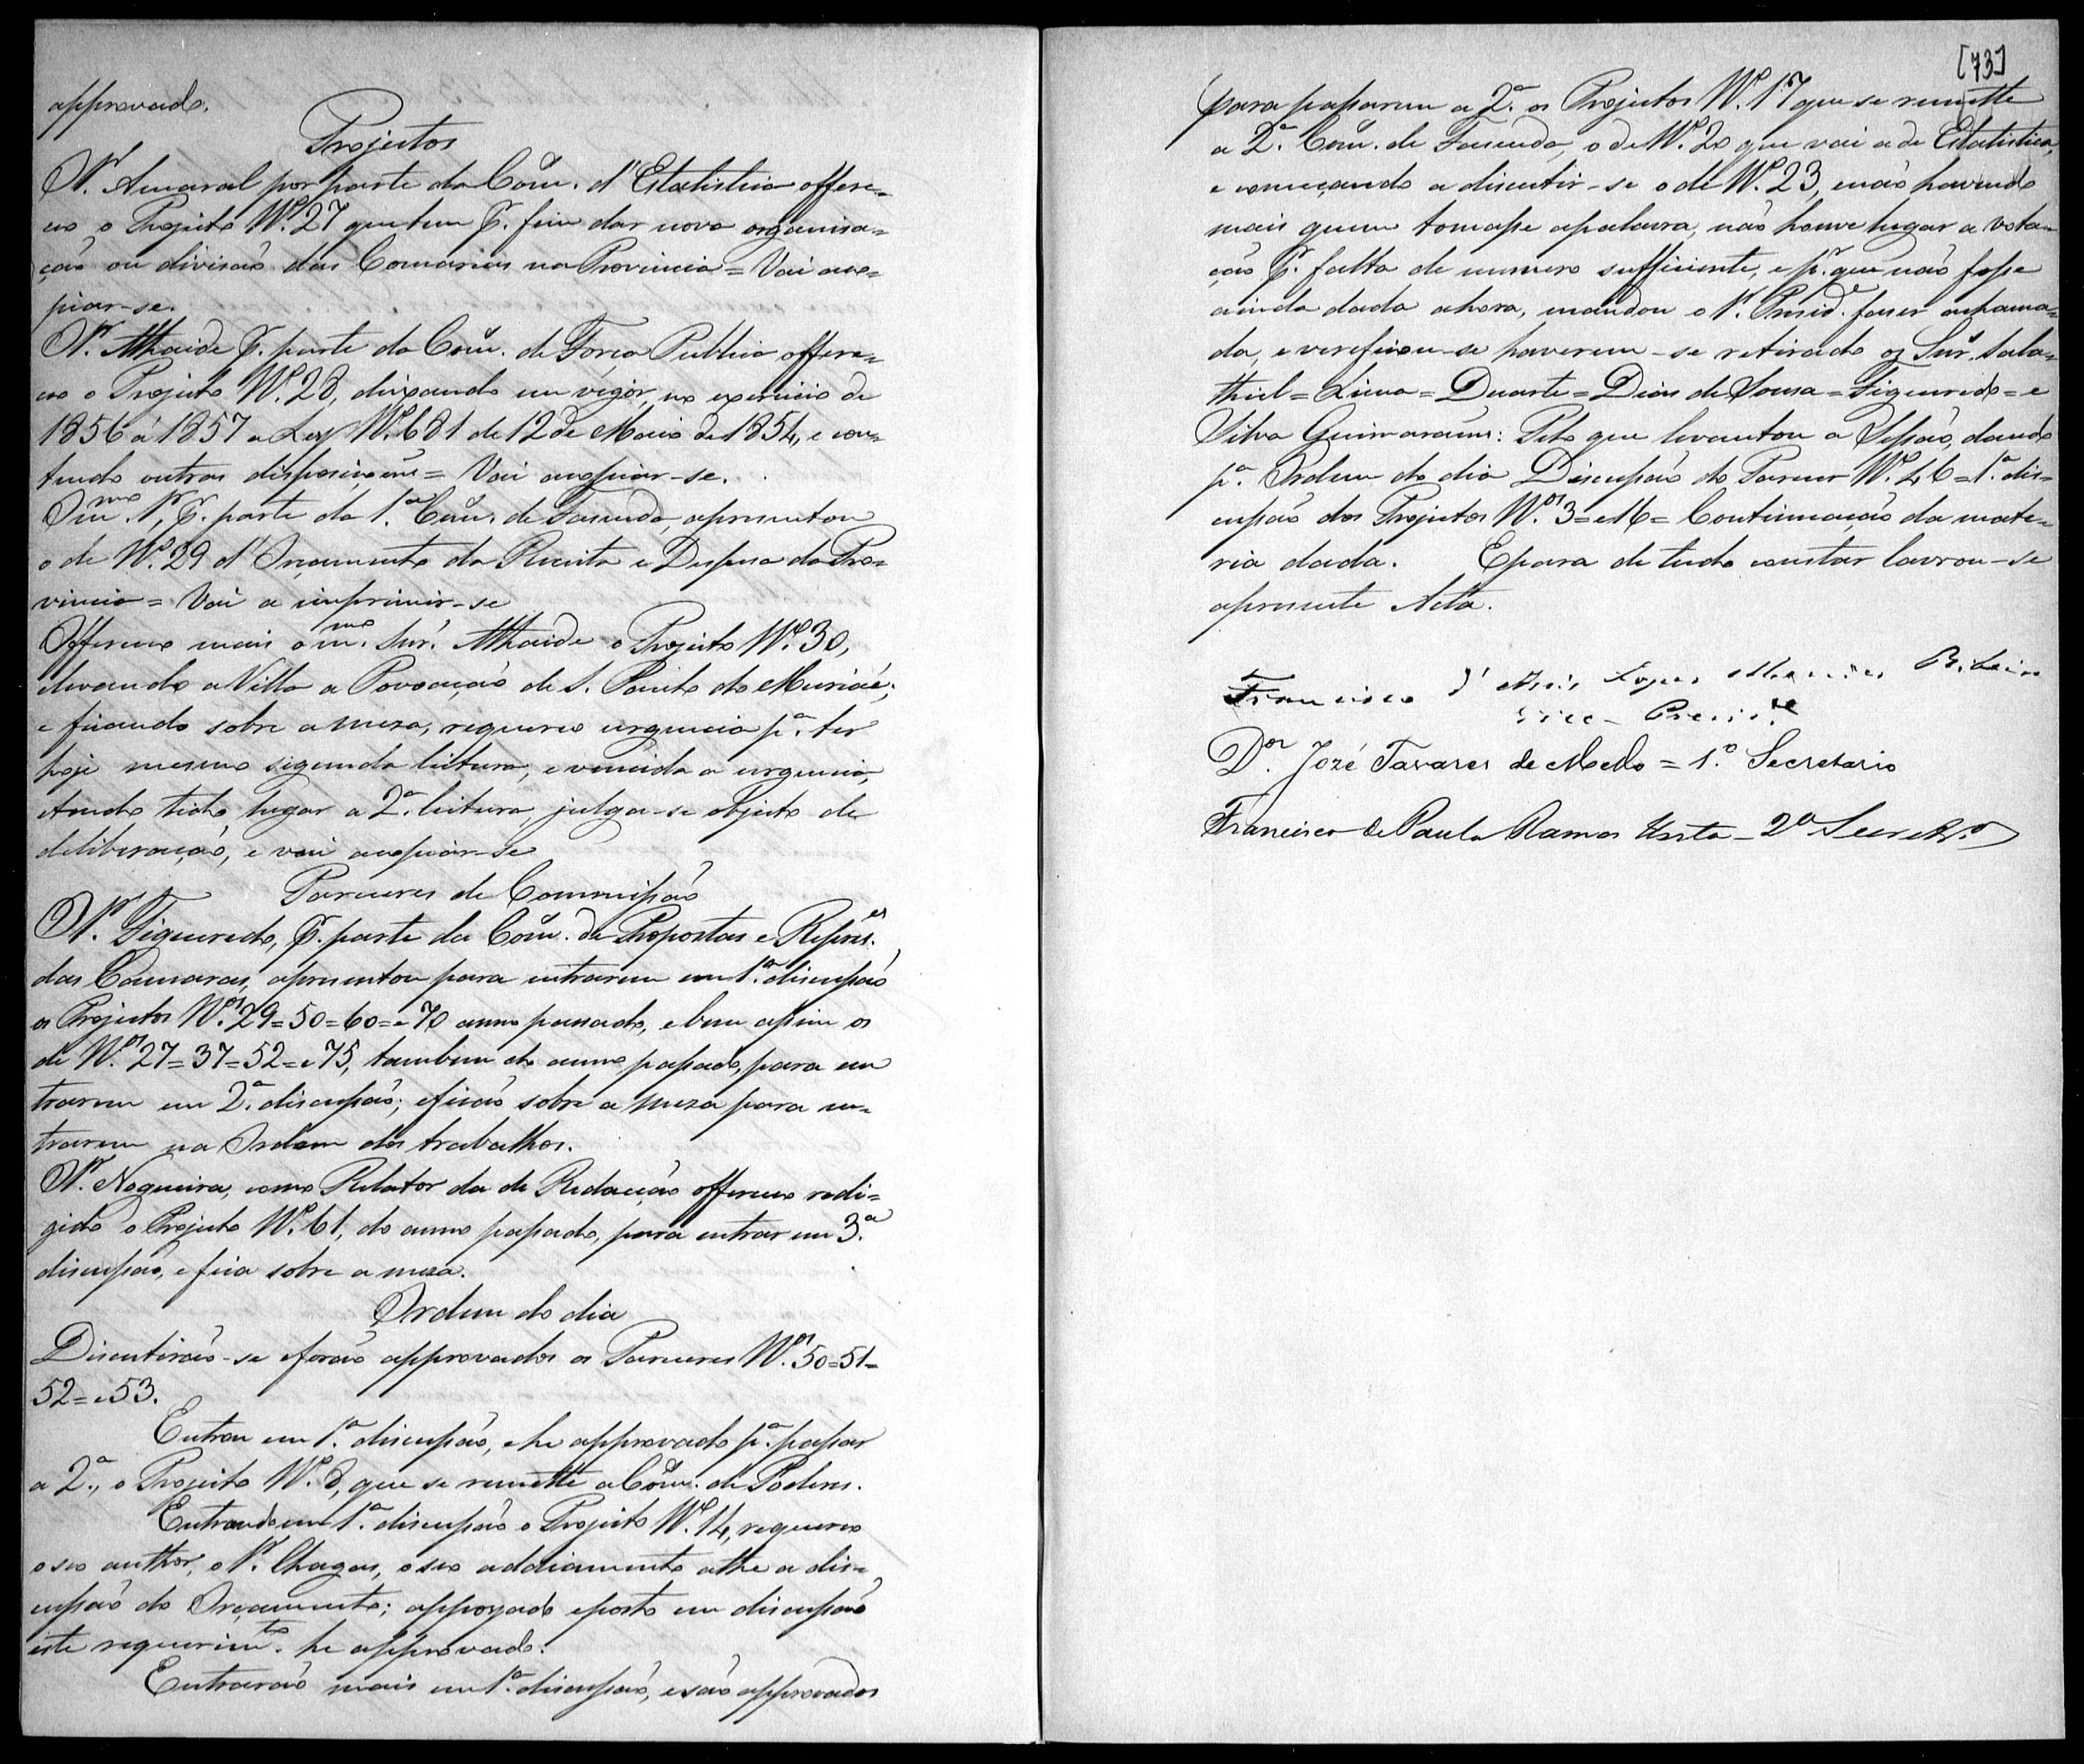 approvado.
Projectos
O Sr. Amaral por parte da Com. d'Estatistica offere-
ceo o Projecto Nº. 27 que tem p.r fim dar nova organisa-
ção ou divisão das Comarcas na Provincia = Vai aco-
piar-se.
O Sr. Athaide p.r parte da Com. de Força Publica offere-
ceo o Projecto Nº. 28, deixando em vigor no exercicio de
1856 á 1857 a Ley Nº. 681 de 12 de Maio de 1854, e con-
tendo outras disposiçoens = Vai acopiar-se.
O m.mo Sr. p.r parte da 1.ª Com. de Fasenda, apresentou
o de Nº. 29 d'Orçamento da Receita e Despesa da Pro-
vincia = Vai a imprimir-se
Offereceo mais o m.mo Snr. Athaide o Projecto Nº. 30,
elevando a Villa a Povoação de S. Paulo do Muriaé;
e ficando sobre a meza, requereo urgencia p.ª ter
hoje mesmo segunda leitura, e vencida a urgencia,
etendo tido lugar a 2.ª leitura, julga-se objecto de
deliberação, e vai acopiar-se
Pareceres de Commissão
O Sr. Figueredo, p.r parte da Com. de Propostas e Repres.es
das Camaras, apresentou para entrarem em 1.ª discussão
os Projectos N.os 29=50=60=e70 anno passado, e bem assim os
de N.os 27=37=52=e75, tambem do anno passado, para en
trarem em 2.ª discussão; eficão sobre a meza para en-
trarem na Ordem dos trabalhos.
O Sr. Nogueira, como Relator da de Redacção offereceo redi-
gido o Projecto Nº. 61, do anno passado, para entrar em 3.ª
discussão, e fica sobre a meza.
Ordem do dia
Discutirão-se eforão approvados os Pareceres N.os 50=51=
52=e53.
Entrou em 1.ª discussão, ehe approvado p.ª passar
a 2.ª, o Projecto Nº. 8, que se remette a Com. de Poderes.
Entrando em 1.ª discussão o Projecto Nº. 14, requereo
o seo author, o Sr. Chagas, o seo addiamento athe a dis-
cussão do Orçamento; appoyado eposto em discussão
este requerim.to he approvado.
Entrarão mais em 1.ª discussão, esão approvados
[73]
para passarem a 2.ª os Projectos Nº. 17 que se remette
a 2.ª Com. de Fasenda, o de Nº. 20 que vai a de Estatistica,
e começando a discutir-se o de Nº. 23, enão havendo
mais quem tomasse apalavra, não houve lugar a vota-
ção p.r falta de numero sufficiente, e p.r que não fosse
ainda dada ahora, mandou o Sr. Presid.e faser achama-
da, e verificou-se haverem-se retirado os Snr.s Sala-
thiel = Lima = Duarte = Dias de Sousa = Figueredo = e
Silva Guimaraens: Pelo que levantou a Sessão, dando
p.ª Ordem do dia Discussão do Parecer Nº. 46 = 1.ª dis-
cussão dos Projectos N.os 3=e16= Continuação da mate-
ria dada. Epara de tudo constar lavrou-se
apresente Acta.
Francisco d'Assis Lopes Mendes Ribeiro
Vice-Presid.te
D.or Jozé Tavares de Mello = 1.º Secretario
Francisco de Paula Ramos Horta - 2º Secret.ro